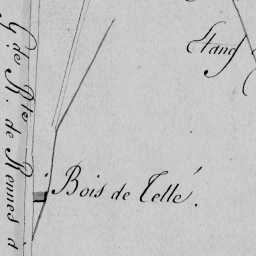 Etang
Bois de Tellé.
G.de R.te de Rennes à